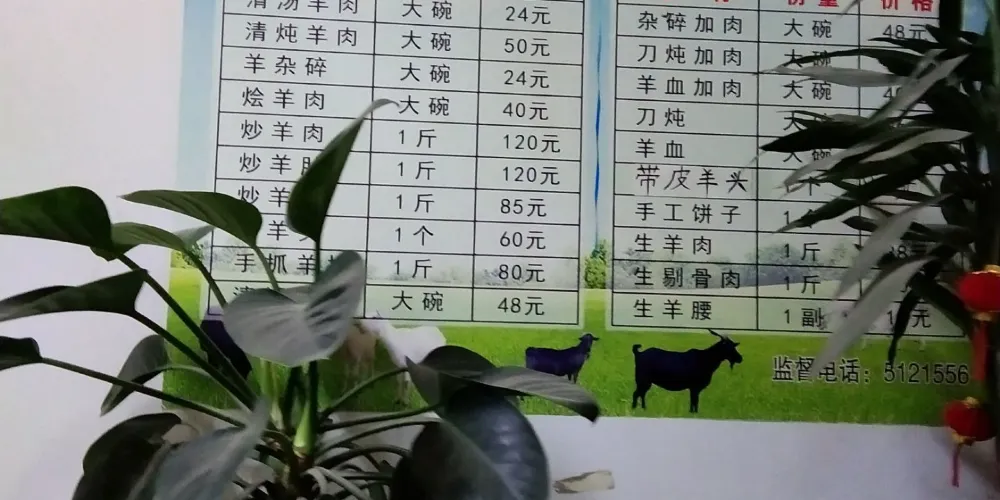 清汤羊肉 大碗 24元
清炖羊肉 大碗 50元
羊杂碎 大碗 24元
烩羊肉 大碗 40元
炒羊肉 1斤 120元
炒羊 1斤 120元
炒羊 1斤 85元
羊头 1个 60元
手抓羊 1斤 80元
大碗 48元
价格
杂碎加肉 大碗 48元
刀炖加肉 大碗
羊血加肉 大碗
刀炖
羊血 大碗
带皮羊头
手工饼子
生羊肉 1斤
生剔骨肉 1斤
生羊腰 1副 元
监督电话：5121556